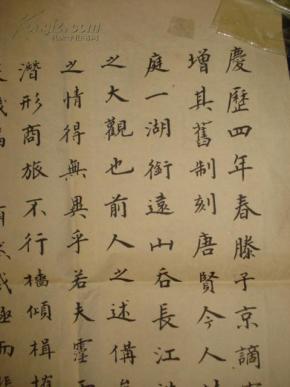 慶歷四年春滕子京謫
增其舊制刻唐賢今人
庭一湖銜遠山吞長江
之大觀也前人之述備
之情得無異乎若夫霪
潛形商旅不行檣傾楫
然感極而